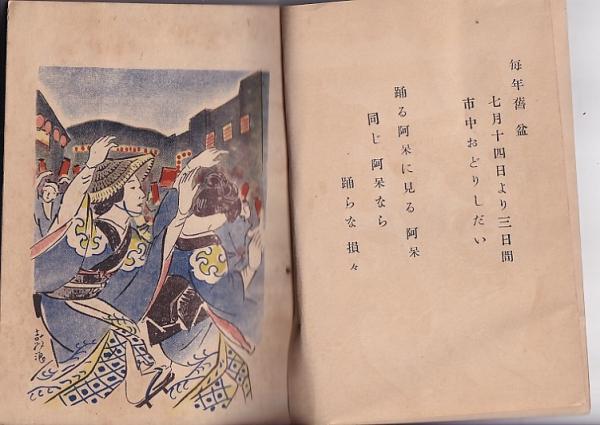 毎年舊盆
七月十四日より三日間
市中おどりしだい
踊る阿呆に見る阿呆
同じ阿呆なら
踊らな損々